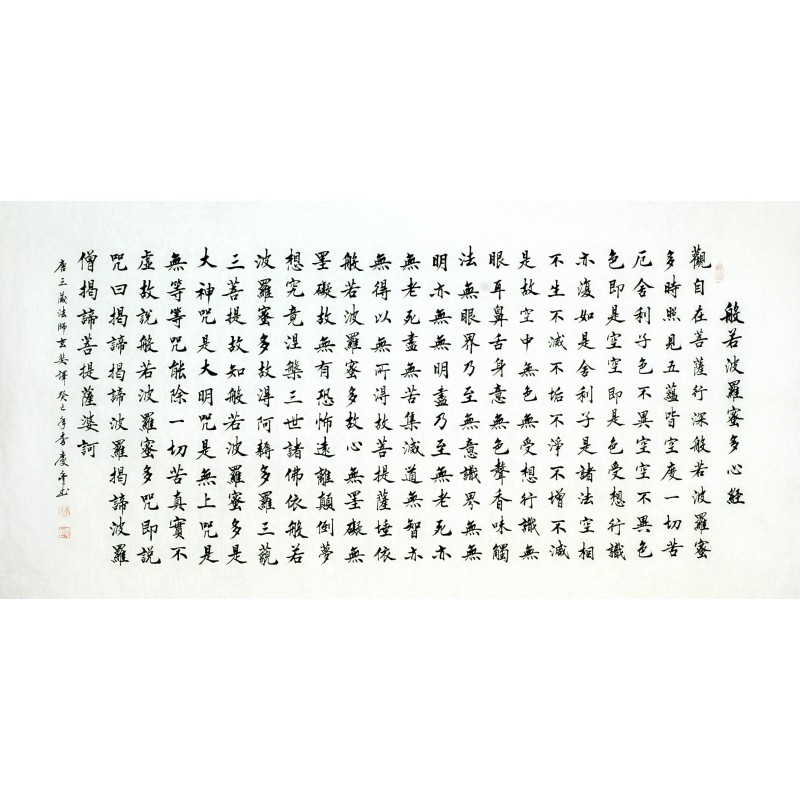 般若波羅蜜多心經
觀自在菩薩行深般若波羅蜜
多時照見五蘊皆空度一切苦
厄舍利子色不異空空不異色
色即是空空即是色受想行識
亦復如是舍利子是諸法空相
不生不滅不垢不淨不增不減
是故空中無色無受想行識無
眼耳鼻舌身意無色聲香味觸
法無眼界乃至無意識界無無
明亦無無明盡乃至無老死亦
無老死盡無苦集滅道無智亦
無得以無所得故菩提薩埵依
般若波羅蜜多故心無罣礙無
罣礙故無有恐怖遠離顛倒夢
想究竟涅槃三世諸佛依般若
波羅蜜多故得阿耨多羅三藐
三菩提故知般若波羅蜜多是
大神咒是大明咒是無上咒是
無等等咒能除一切苦真實不
虛故說般若波羅蜜多咒即說
咒曰揭諦揭諦波羅揭諦波羅
僧揭諦菩提薩婆訶
唐三藏法師玄奘譯癸巳年